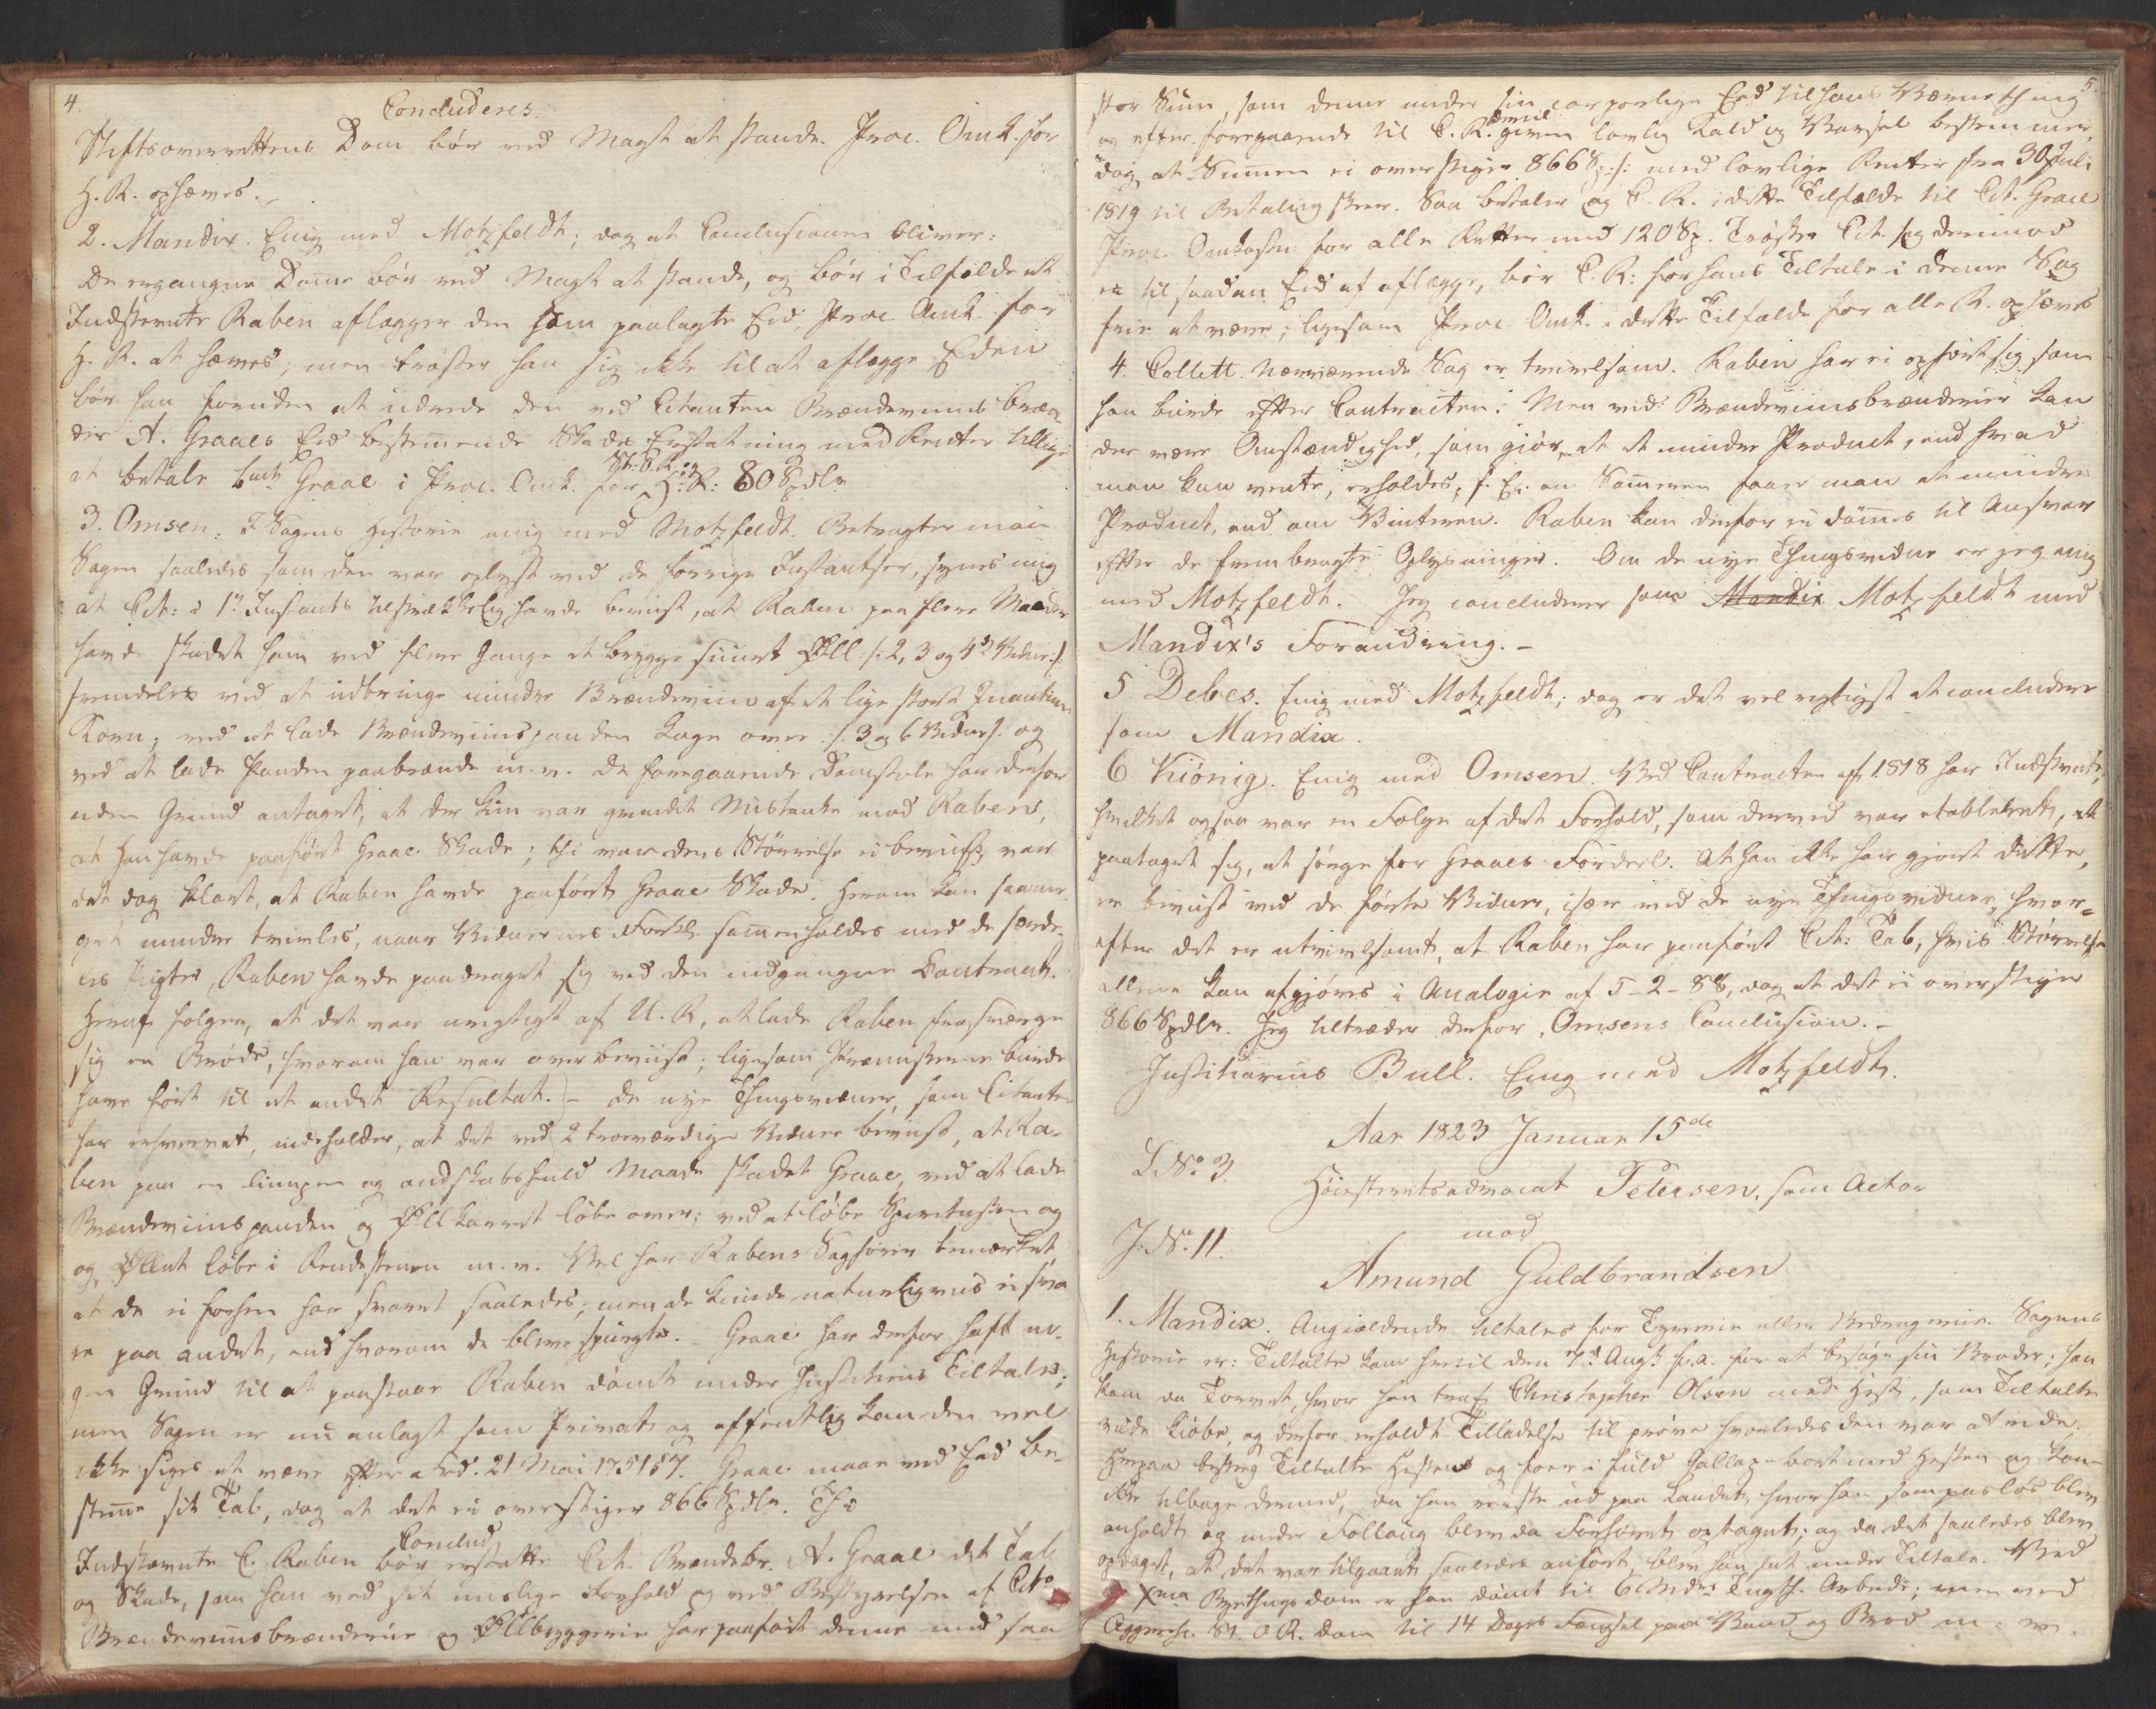 4.
Concluderes:
Stiftsoverrettens Dom bör ved Magt at stande. Proc. Omk. for
H. R. ophæves. –
2. Mandix. Enig med Motzfeldt; dog at Conclusionen bliver:
De ergangne Domme bör ved Magt at stande, og bör i Tilfælde at
Indstevnte Raben aflægger den ham paalagte Eed, Proc. Omk. for
H. R. at hæves; men tröster han sig ikke til at aflægge Eden
bör han foruden at udrede den ved Citanten Brændeviins bræn-
der A. Graaes Eed bestemmende Skades Erstatning med Renter tillige
at betale bmte Graae i Proc. Omk. for St: O. R: og H: R: 80 Spdlr
3. Omsen. I Sagens Historie enig med Motzfeldt. Betragter man
Sagen saaledes som den var oplyst ved de forrige Instantser, synes mig
at Cit: i 1ste Instants tilstrækkelig havde beviist, at Raben paa flere Maader
havde skadet ham ved flere Gange at brygge suurt Öll /: 2, 3 og 4de Vidne :/
fremdeles ved at udbringe mindre Brændeviin af et lige stort Qvantum
Korn; ved at lade Brændeviinspanden koge over /: 3 og 6 Vidne :/ og
ved at lade Panden paabrænde m. v. De foregaaende Domstole har derfor
uden Grund antaget, at der kun var grundet Mistanke mod Raben,
at han havde paafört Graae Skade; thi var dens Störrelse ei beviist, var
det dog klart, at Raben havde paafört Graae Skade. Herom kan saa meget
mindre tvivles, naar Vidnernes Forkl. sammenholdes med de særde-
les Pligter, Raben havde paadraget sig ved den indgangne Contract.
Heraf fölger, at det var urigtigt af U. R. at lade Raben fraværge
sig en Bröde, hvorom han var overbeviist; ligesom Præmisserne burde
have fört til et andet Resultat. – De nye Thingsvidner, som Citanten
har erhvervet, indeholder, at det ved 2 troværdige Vidner beviist, at Ra-
ben paa en lumpen og ondskabsfuld Maade skadet Graae, ved at lade
Brændeviinspanden og Öllkarret löbe over; ved at löbe Spiritussen og
og Öllet löbe i Rendestenen m. v. Vel har Rabens Sagförer bemærket
at de ei forhen har svaret saaledes; men de kunde naturligviis ei sva-
re paa andet, end hvorom de bleve spurgte. Graae har derfor haft no-
gen Grund til at paastaae Raben dömt under Justitiens Tiltale;
men Sagen er nu anlagt som Privat og offentlig kan den vel
ikke siges at være efter Frd. 21 Mai 1751 § 7. Graae maae ved Eed be-
stemme sit Tab, dog at det ei overstiger 866 Spdlr. Thi
Conclud
Indstævnte C. Raben bör erstatte Cit. Brændebr. A. Graae det Tab
og Skade, som han ved sit urolige Forhold og ved Bestyrelsen af Cits
Brændeviinsbrænderie og Öllbryggerie har paafört denne med saa
5.
stor Sum, som denne under sin corporlige Eed til hans Værnething
og efter foregaaende til C. R. dertil given lovlig Kald og Varsel bestemmer,
dog at Summen ei overstiger 866 Sp: /: med lovlige Renter fra 30 Juli
1819 til Betaling skeer. Saa betaler og C. R. i dette Tilfælde til Cit. Graae
Proc. Omkosn. for alle Retter med 120 Sp. Tröster Cit. sig derimod
ei til saadan Eed at aflægge, bör C. R: for hans Tiltale i denne Sag
frie at være; ligesom Proc. Omk. i dette Tilfælde for alle R. ophæves
4. Collett. Nærværende Sag er tvivlsom. Raben har ei opfört sig som
han burde efter Contracten. Men ved Brændeviinsbrænderier kan
der være Omstændighed, som giör, at et mindre Product, end hvad
man kan vente, erholdes, f. Ex. om Sommeren faaer man et mindre
Product, end om Vinteren. Raben kan derfor ei dömmes til Ansvar
efter de frembragte Oplysninger. Om de nye Thingsvidner er jeg enig
med Motzfeldt. Jeg concluderer som Mandix Motzfeldt med
Mandix's Forandring. –
5 Debes. Enig med Motzfeldt; dog er det vel rigtigst at concludere
som Mandix.
6. Kiönig. Enig med Omsen. Ved Contracten af 1818 har Indstevnte,
hvilket ogsaa var en Fölge af det Forhold, som derved var etableret, at
paataget sig, at sörge for Graaes Fordeel. At han ikke har gjort dette,
er beviist ved de förte Vidner, især ved de nye Thingsvidner, hvor-
efter det er utvivlsomt, at Raben har paafört Cit: Tab, hvis Störrelse
allene kan afgjöres i Analogie af 5-2-88, dog at det ei overstiger
866 Spdlr. Jeg tiltræder derfor Omsens Conclusion. –
Justitiarius Bull. Enig med Motzfeldt.
Aar 1823 Januar 15de
L. No. 3.
Höiesteretsadvocat Petersen, som Actor
mod
J. No. 11.
Amund Guldbrandsen
1. Mandix. Angieldende tiltales for Tyverie eller Bedragerie. Sagens
Historie er: Tiltalte kom hertil den 7de Augst f. a. for at besöge sin Broder; han
kom da Torvet, hvor han traf Christopher Olsen med Hest, som Tiltalte
vilde kiöbe, og derfor erholdt Tilladelse til pröve hvorledes den var at ride.
Herpaa besteg Tiltalte Hesten og foer i fuld Gallop bort med Hesten og kom
ikke tilbage dermed, da han reiste ud paa Landet, hvor han som pasløs blev
anholdt og under Follaug blev da Forhöret optaget; og da det saaledes blev
opdaget, at det var tilgaaet saaledes anfört, blev han sat under Tiltale. Ved
Xnia Byethings dom er han dömt til 6 Mdrs Tugth. Arbeide; men ved
Aggersh. St. O R. Dom til 14 Dages Fængsel paa Vand og Bröd m. v.